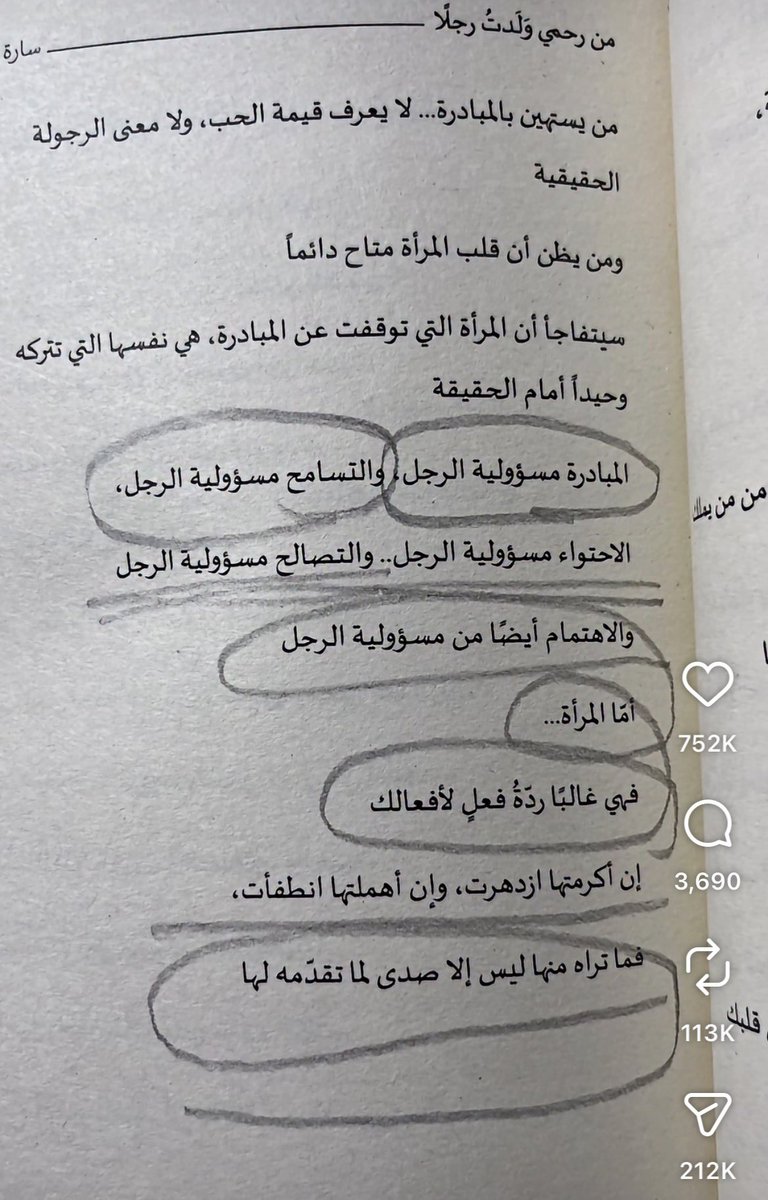 من رحمي وَلَدتُ رجلًا
سارة
من يستهين بالمبادرة... لا يعرف قيمة الحب، ولا معنى الرجولة
الحقيقية
ومن يظن أن قلب المرأة متاح دائماً
سيتفاجأ أن المرأة التي توقفت عن المبادرة، هي نفسها التي تتركه
وحيداً أمام الحقيقة
المبادرة مسؤولية الرجل، والتسامح مسؤولية الرجل،
الاحتواء مسؤولية الرجل.. والتصالح مسؤولية الرجل
والاهتمام أيضًا من مسؤولية الرجل
أمّا المرأة...
فهي غالبًا ردّةُ فعلٍ لأفعالك
إن أكرمتها ازدهرت، وإن أهملتها انطفأت،
فما تراه منها ليس إلا صدى لما تقدّمه لها
من من
قلبك
752K
3,690
113K
212K